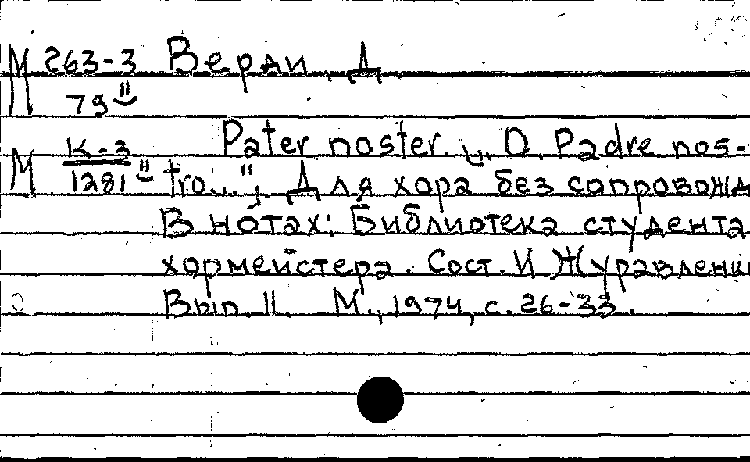 М 263-3 Верди, Д.
79
Pater noster. „O Padre nos-
М К-3
1281 tro..."; Для хора без сопровожд
В нотах: Библиотека студента
хормейстера. Сост. И Журавленк
Вып. 11. М., 1974, с. 26-33.